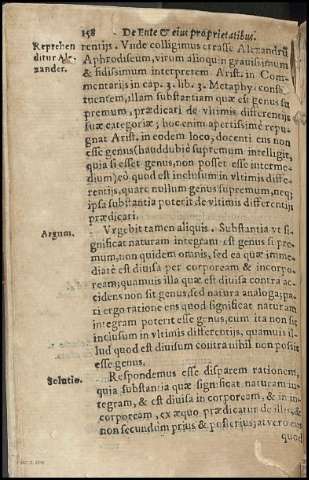 158 De Ente & eius proprietatibus.
Reprehen
ditur Ale-
xander.
rentijs. Vnde colligimus errasse Alexandrũ
Aphrodiseum, virum alioquin grauissimum
& fidissimum interpretem Arist. in Com-
mentarijs in cap. 3. lib. 3. Metaphy. consti-
tuentem, illam substantiam quæ est genus su
premum, prædicari de vltimis differentijs
suæ categoriæ; hoc enim apertissimè repu-
gnat Arist. in eodem loco, docenti ens non
esse genus (hauddubiè supremum intelligit,
quia si esset genus, non posset esse interme-
dium) eo quod est inclusum in vltimis diffe-
rentijs, quare nullum genus supremum, neq;
ipsa substantia poterit de vltimis differentijs
prædicari.
Argum.
Vrgebit tamen aliquis. Substantia vt si-
gnificat naturam integram est genus supre-
mum, non quidem omnis, sed ea quæ imme-
diatè est diuisa per corpoream & incorpo-
ream; quamuis illa quæ est diuisa contra ac-
cidens non sit genus, sed natura analoga; pa-
ri ergo ratione ens quod significat naturam
integram poterit esse genus, cum ita non sit
inclusum in vltimis differentijs, quamuis il-
lud quod est diuisum contra nihil non possit
esse genus.
Solutio.
Respondemus esse disparem rationem,
quia substantia quæ significat naturam in-
tegram, & est diuisa in corpoream, & in in-
corpoream, ex æquo prædicatur de illis, &
non secundum prius & posterius; at vero ens
quod